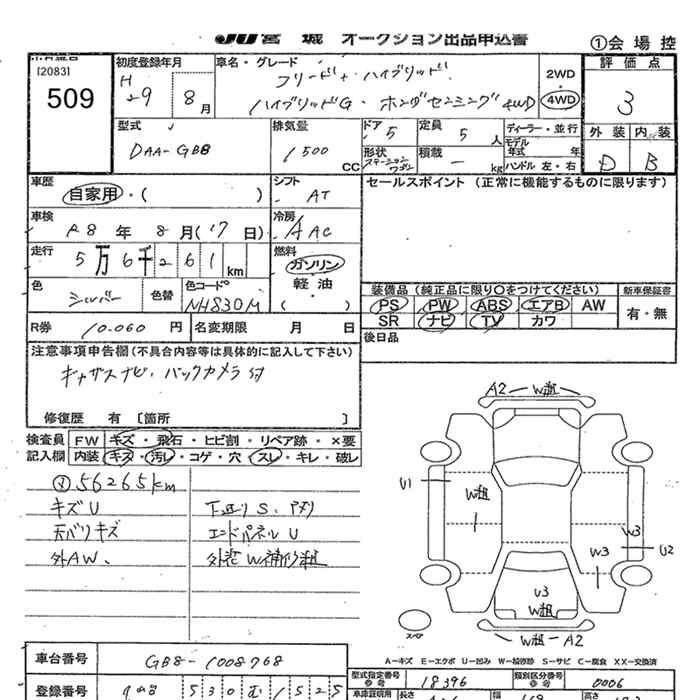 JU宮城 オークション出品申込書
①会場控
[2083]
509
初度登録年月
H 29 8月
車名・グレード
フリード+ ハイブリッド
ハイブリッドG・ホンダセンシング 4WD
2WD
・
4WD
評価点
3
外装 内装
D B
型式
DAA-GB8
排気量
1500
CC
ドア 5
形状
ステーションワゴン
定員 5 人
積載 — kg
ディーラー・並行
モデル年式 年
ハンドル 左・右
車歴
自家用・( )
シフト
AT
セールスポイント (正常に機能するものに限ります)
車検
R8 年 8 月(17日)
冷房
AAC
走行
5万6千261km
燃料
ガソリン
軽油
( )
色
シルバー
色替
色コード
NH830M
装備品 (純正品に限り○をつけてください)
新車保証書
PS PW ABS エアB AW
SR ナビ TV カワ
有・無
R券 10.060 円
名変期限 月 日
後日品
注意事項申告欄(不具合内容等は具体的に記入して下さい)
ギャザズナビ・バックカメラ付
修復歴 有 [箇所 ]
検査員記入欄
FW キズ・飛石・ヒビ割・リペア跡・×要
内装 キズ・汚レ・コゲ・穴・スレ・キレ・破レ
56265km
キズU
天バリキズ
外AW、
下廻りS、
エンドパネルU
外装W補修粗
A2 W粗
U1
W粗
W3
W3
U2
U3
W粗
スペア
W粗 A2
A-キズ E-エクボ U-凹み W-補修跡 S-サビ C-腐食 XX-交換済
車台番号
GB8-1008768
型式指定番号
18396
類別区分番号
0006
登録番号
530
1525
車庫証明用
長さ
幅
高さ